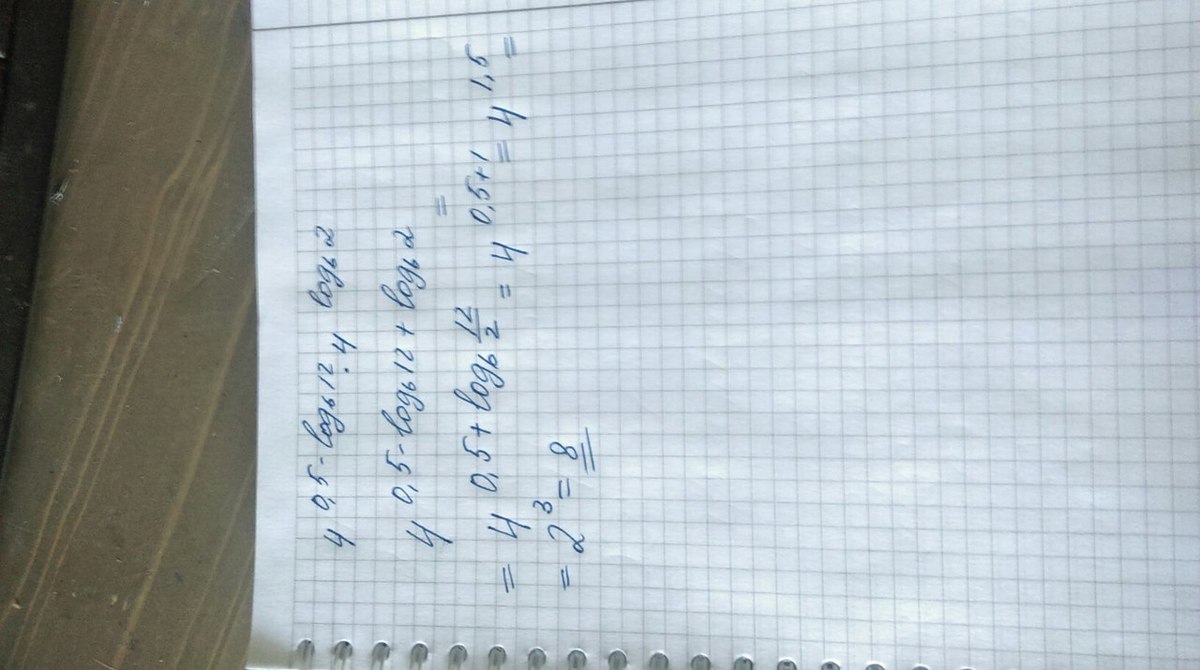 4^{0,5-log₆12} · 4^{log₆2}
4^{0,5-log₆12+log₆2} =
= 4^{0,5+log₆ 12/2} = 4^{0,5+1} = 4^{1,5} =
= 2³ = 8